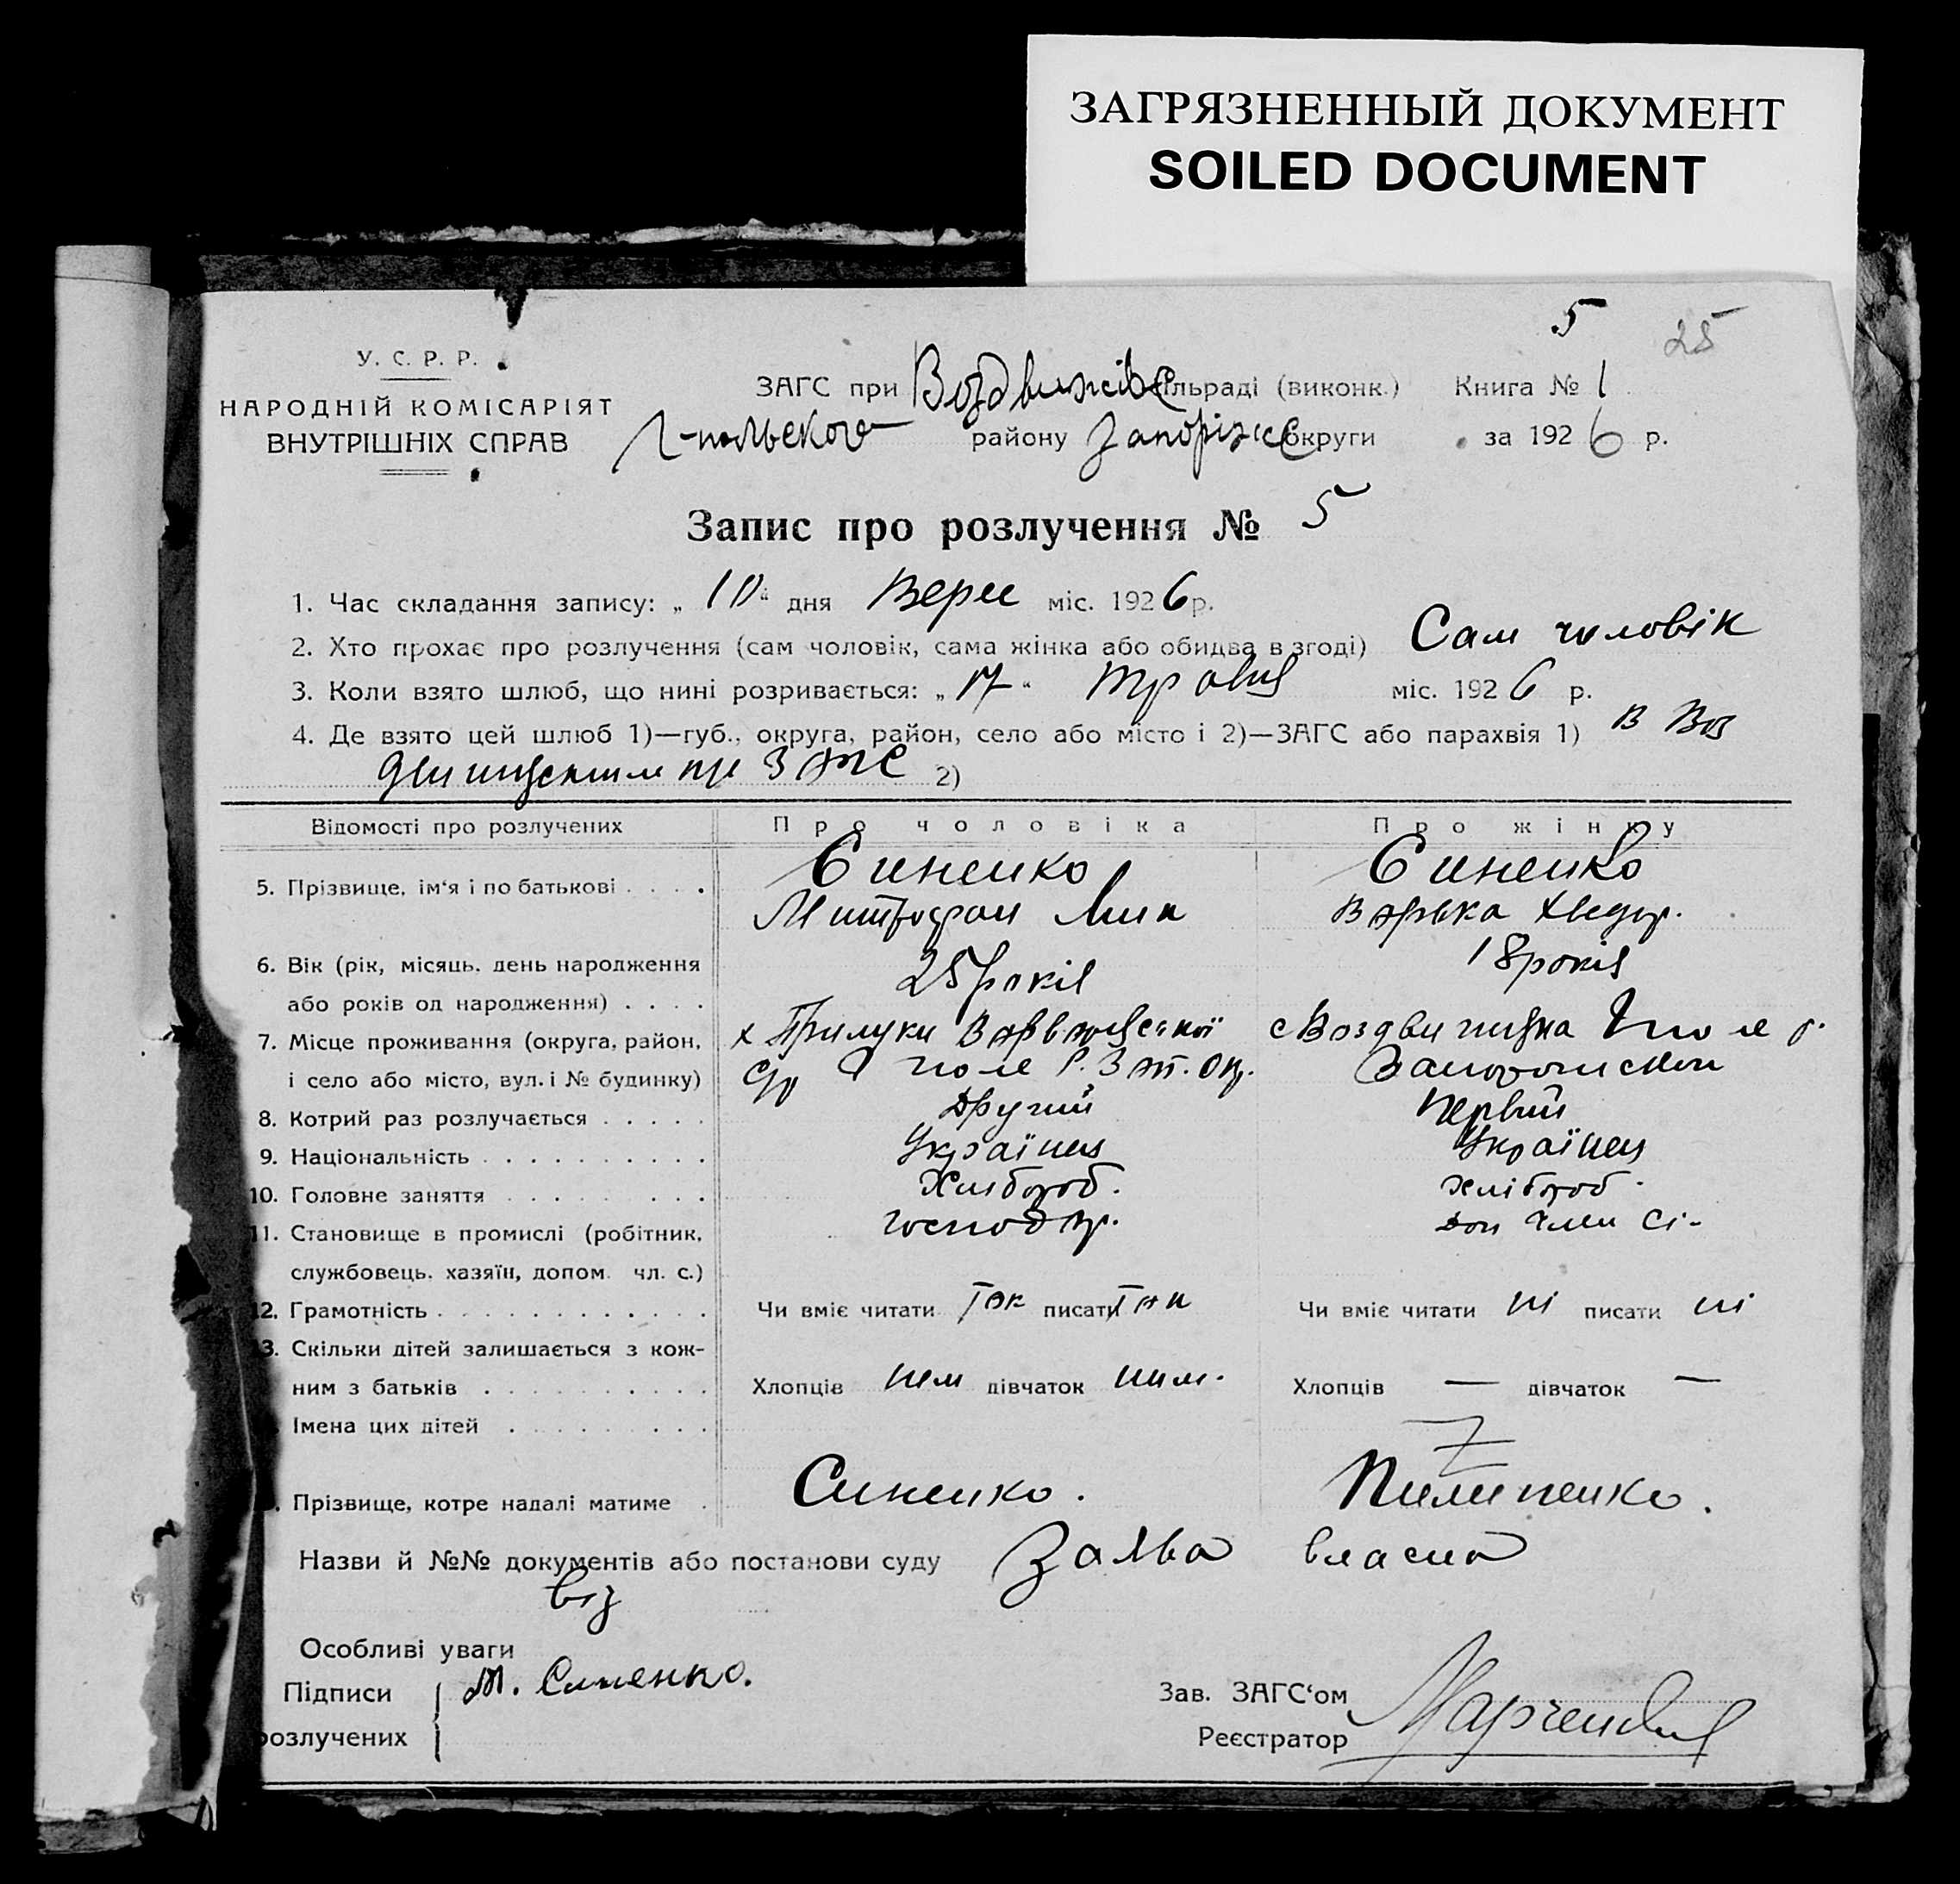 ЗАГРЯЗНЕННЫЙ ДОКУМЕНТ
SOILED DOCUMENT
5 25
У. С. Р. Р.
НАРОДНІЙ КОМІСАРІЯТ
ВНУТРІШНІХ СПРАВ
ЗАГС при Воздвижівс сільраді (виконк.) Книга № 1
Г-польского району Запоріжс округи за 1926 р.
Запис про розлучення № 5
1. Час складання запису: „10“ дня Верес міс. 1926 р.
2. Хто прохає про розлучення (сам чоловік, сама жінка або обидва в згоді) Сам чоловік
3. Коли взято шлюб, що нині розривається: „17“ травня міс. 1926 р.
4. Де взято цей шлюб 1)—губ., округа, район, село або місто і 2)—ЗАГС або парахвія 1) В Воз
ЗАГС 2)
Відомості про розлучених Про чоловіка Про жінку
5. Прізвище, ім'я і по батькові . . . . Синенко Синенко
Митрофан Варька Хведор.
6. Вік (рік, місяць, день народження 25 років 18 років
або років од народження) . . . .
7. Місце проживання (округа, район, х Прилуки с Воздвижівка
і село або місто, вул. і № будинку) Г поле Р. Зап. Окр.
8. Котрий раз розлучається . . . . . Другий Первий
9. Національність . . . . . . . . . . Українец Українец
10. Головне заняття . . . . . . . . . Хлібороб. хлібороб.
11. Становище в промислі (робітник, господар. Доп член сі-
службовець, хазяїн, допом. чл. с.)
12. Грамотність . . . . . . . . . . . . Чи вміє читати так писати так Чи вміє читати ні писати ні
13. Скільки дітей залишається з кож-
ним з батьків . . . . . . . . . . Хлопців нем дівчаток ним. Хлопців — дівчаток —
Імена цих дітей . . . . . . . . .
Прізвище, котре надалі матиме . Синенко. Пилипенко.
Назви й №№ документів або постанови суду Заява власна
Особливі уваги
Підписи М. Синенко. Зав. ЗАГС'ом
розлучених Реєстратор